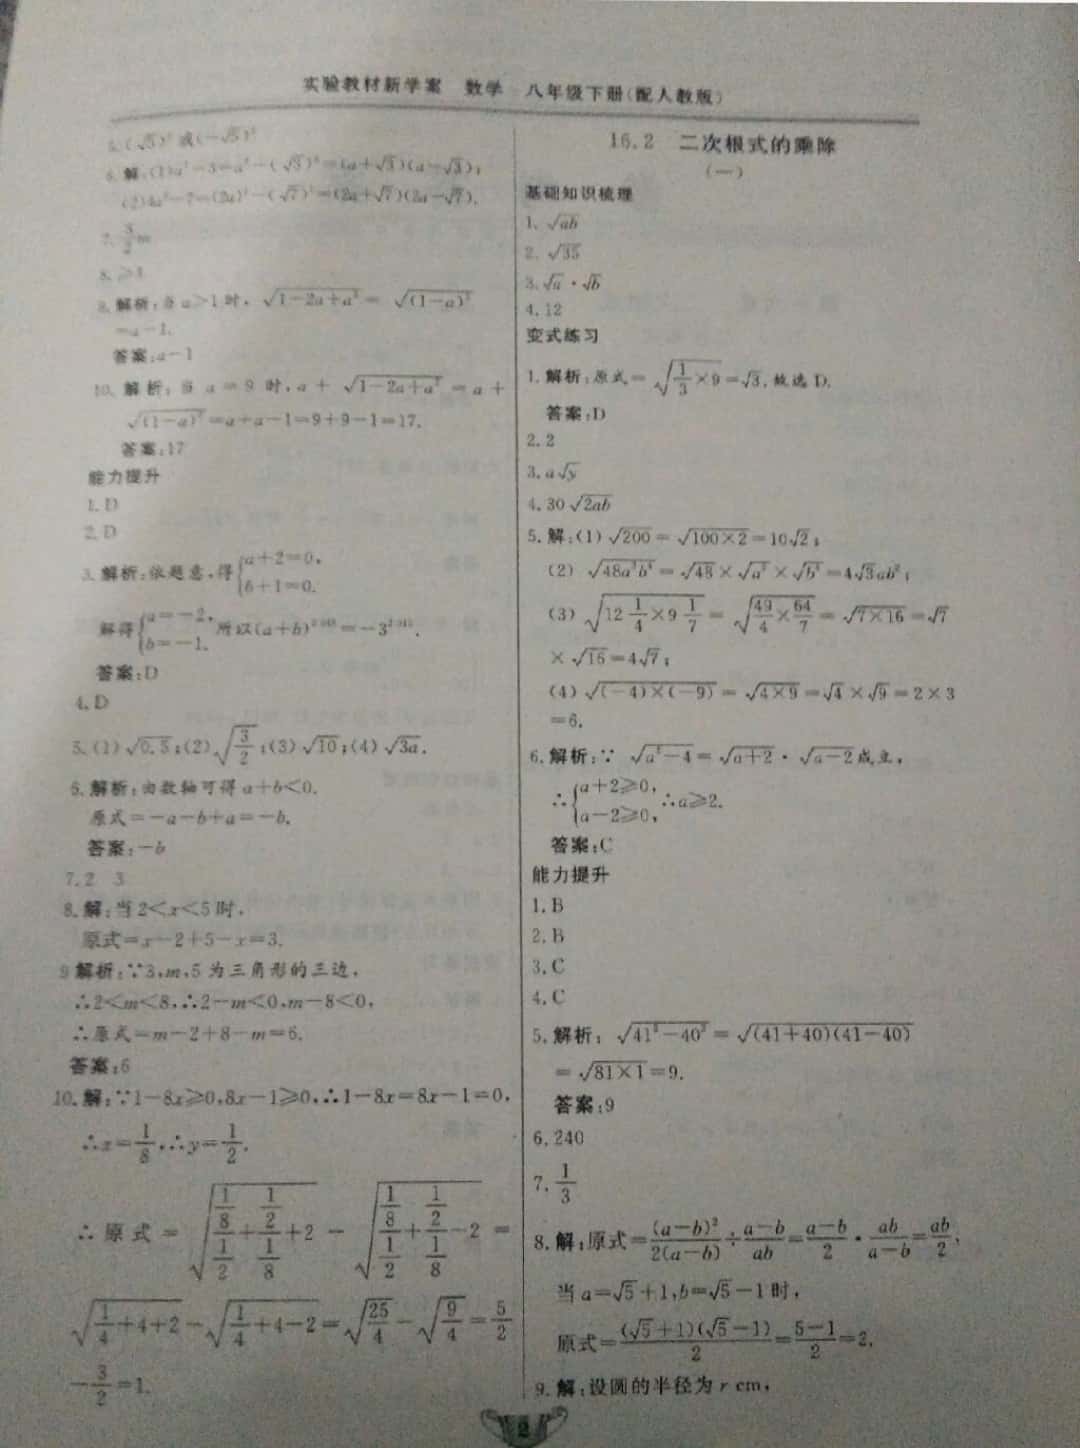 实验教材新学案 数学 八年级下册(配人教版)
5.(√5)²或(-√5)²
6.解:(1)a²-3=a²-(√3)²=(a+√3)(a-√3);
(2)4a²-7=(2a)²-(√7)²=(2a+√7)(2a-√7).
7. 3/2 m
8.≥1
9.解析:当a>1时,√(1-2a+a²)=√((1-a)²)
=a-1.
答案:a-1
10.解析:当a=9时,a+√(1-2a+a²)=a+
√((1-a)²)=a+a-1=9+9-1=17.
答案:17
能力提升
1.D
2.D
3.解析:依题意,得{a+2=0,
b+1=0.
解得{a=-2,
b=-1.
所以(a+b)
答案:D
4.D
5.(1)√0.5;(2)√(3/2);(3)√10;(4)√3a.
6.解析:由数轴可得a+b<0.
原式=-a-b+a=-b.
答案:-b
7.2 3
8.解:当2<x<5时,
原式=x-2+5-x=3.
9解析:∵3,m,5为三角形的三边,
∴2<m<8,∴2-m<0,m-8<0,
∴原式=m-2+8-m=6.
答案:6
10.解:∵1-8x≥0,8x-1≥0,∴1-8x=8x-1=0,
∴x=1/8,∴y=1/2.
∴原式=√((1/8)/(1/2)+(1/2)/(1/8)+2)-√((1/8)/(1/2)+(1/2)/(1/8)-2)=
√(1/4+4+2)-√(1/4+4-2)=√(25/4)-√(9/4)=5/2
-3/2=1.
16.2 二次根式的乘除
(一)
基础知识梳理
1.√ab
2.√35
3.√a·√b
4.12
变式练习
1.解析:原式=√(1/3×9)=√3,故选D.
答案:D
2.2
3.a√y
4.30√2ab
5.解:(1)√200=√(100×2)=10√2;
(2)√(48a²b⁴)=√48×√a²×√b⁴=4√3ab²;
(3)√(12 1/4×9 1/7)=√(49/4×64/7)=√(7×16)=√7
×√16=4√7;
(4)√((-4)×(-9))=√(4×9)=√4×√9=2×3
=6.
6.解析:∵√(a²-4)=√(a+2)·√(a-2)成立,
∴{a+2≥0,
a-2≥0,
∴a≥2.
答案:C
能力提升
1.B
2.B
3.C
4.C
5.解析:√(41²-40²)=√((41+40)(41-40))
=√(81×1)=9.
答案:9
6.240
7. 1/3
8.解:原式=(a-b)²/2(a-b)÷(a-b)/ab=(a-b)/2·ab/(a-b)=ab/2,
当a=√5+1,b=√5-1时,
原式=(√5+1)(√5-1)/2=(5-1)/2=2.
9.解:设圆的半径为r cm,
2